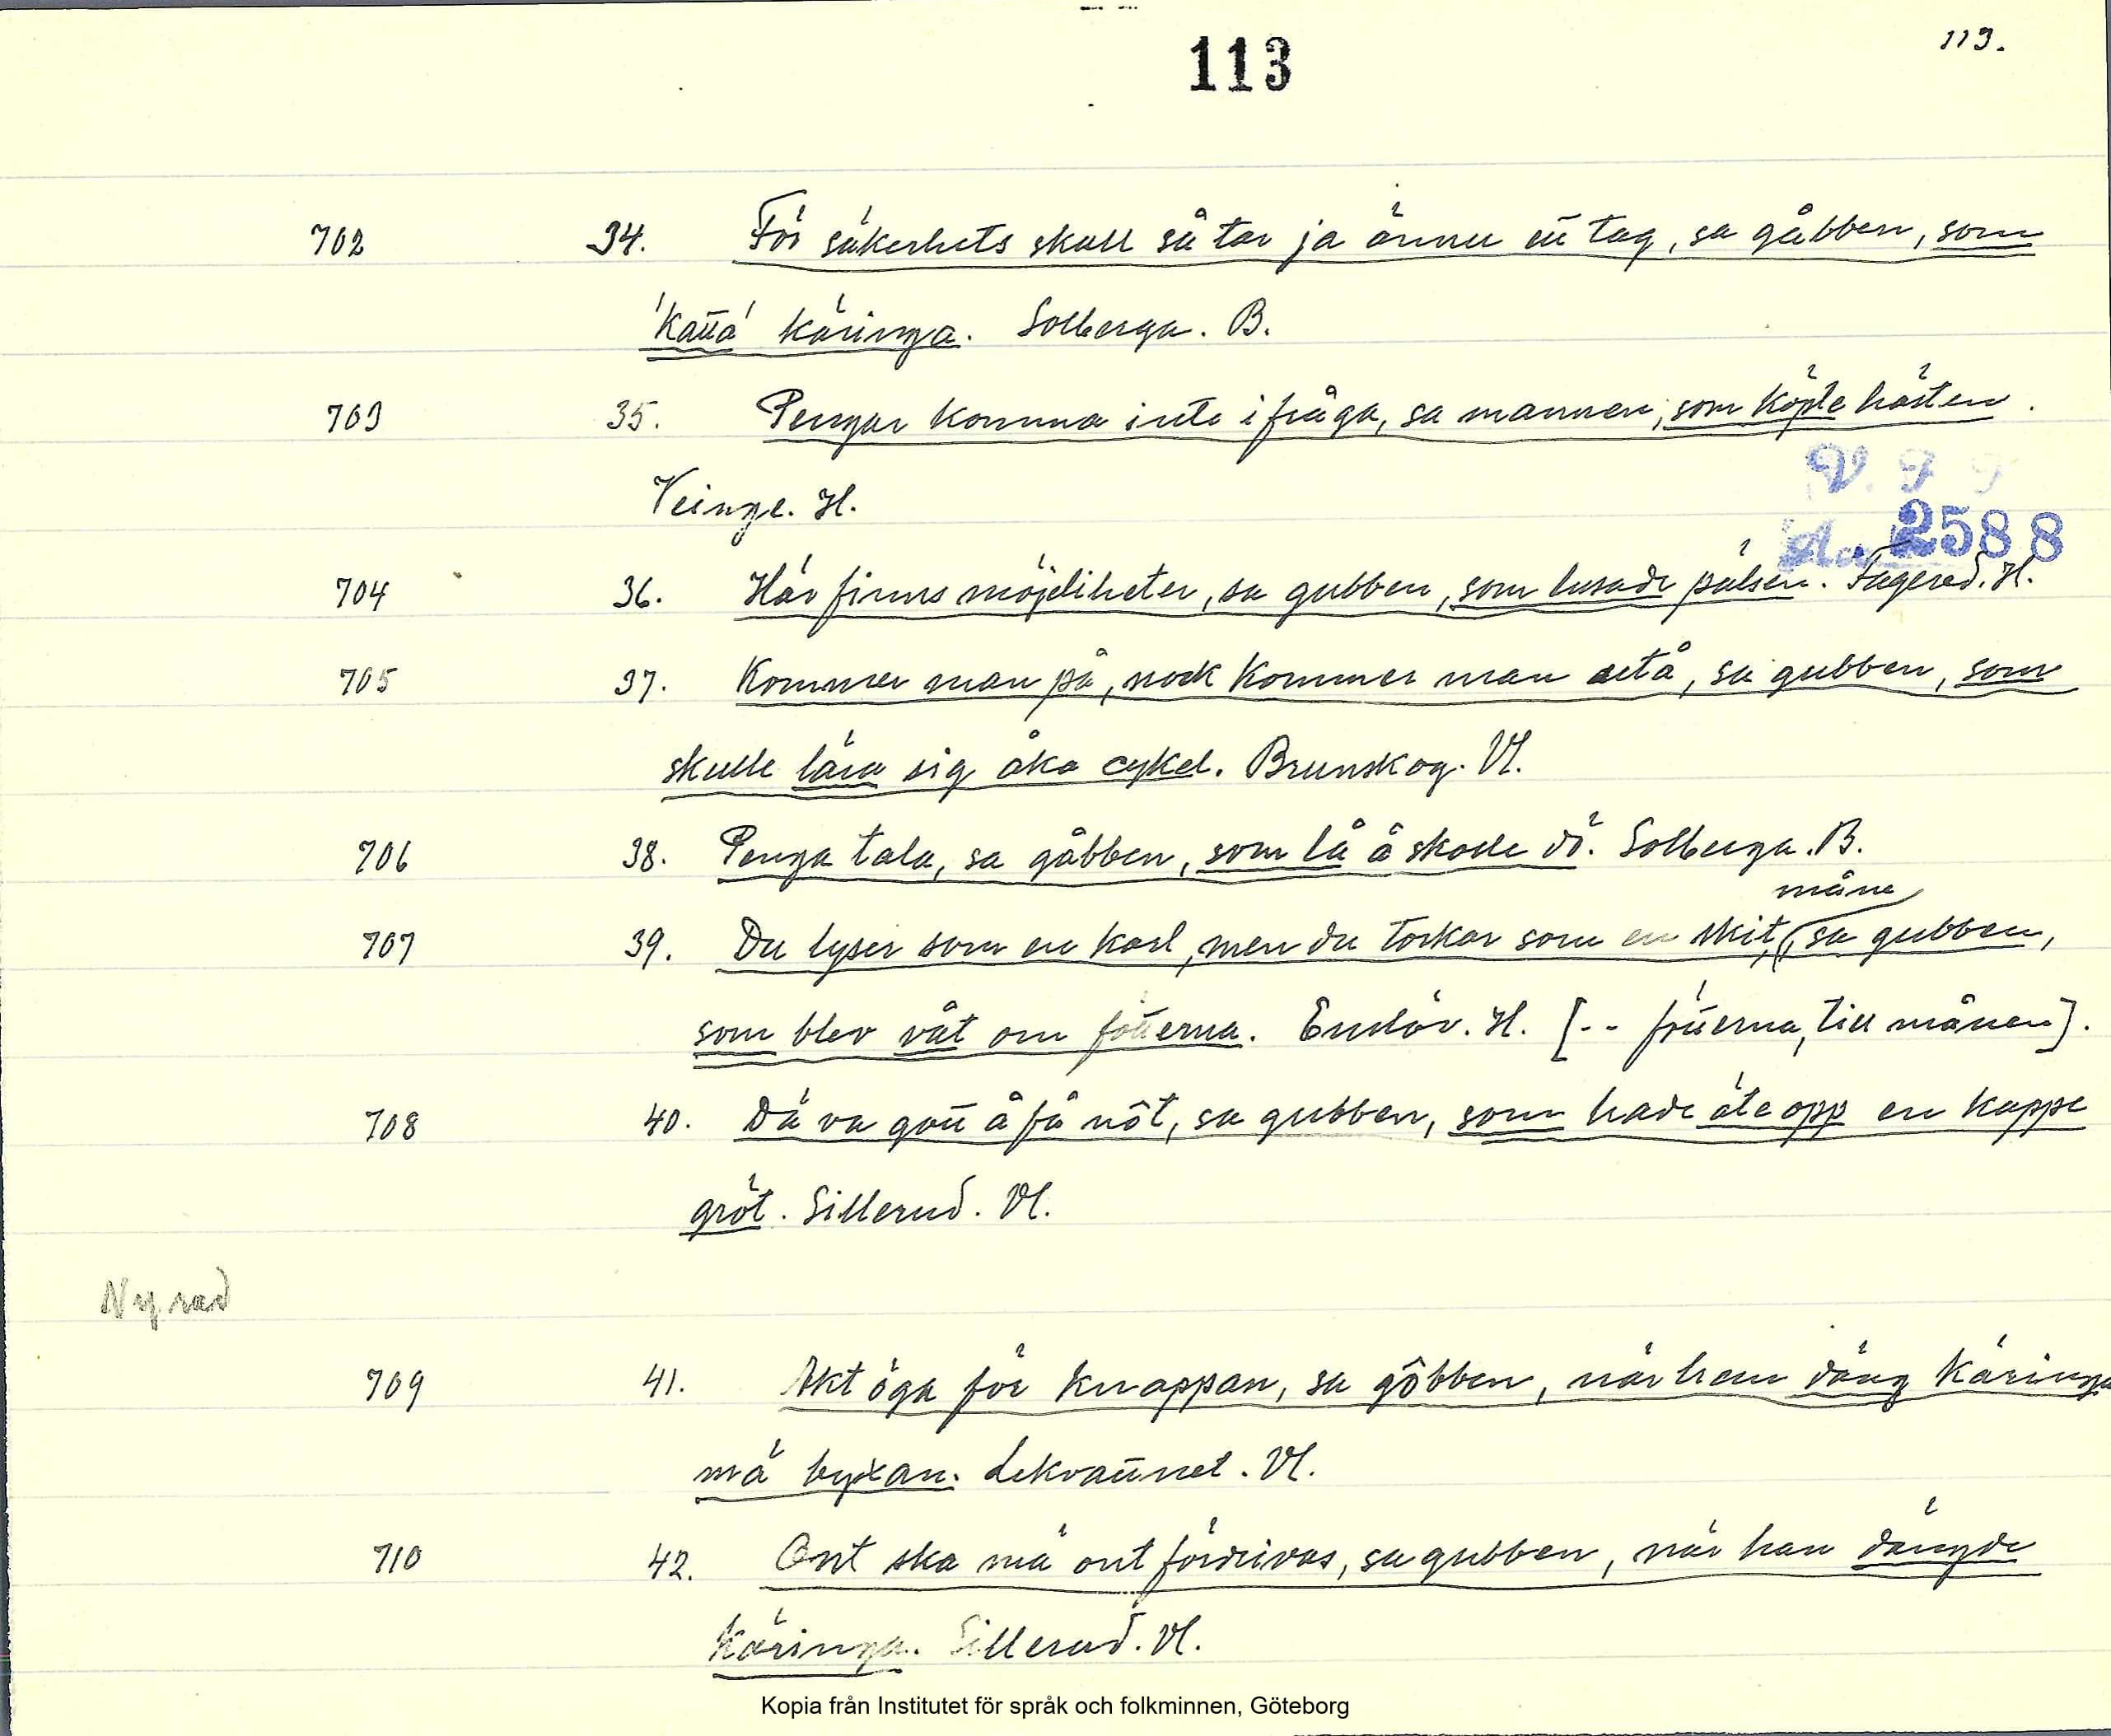 113
113.
702 34. För säkerhets skull så tar ja ännu ett tag, sa gåbben, som
'Katta' käringa. Solberga. B.
703 35. Pengar komma inte i fråga, sa mannen, som köpte hästen.
Veinge. H.
V. F. F
2588
704 36. Här finns möjeliheter, sa gubben, som lusade pälsen. Fagered. H.
705 37. Kommer man på, nock kommer man åtå, sa gubben, som
skulle lära sig åka cykel. Brunskog. Vl.
706 38. Penga tala, sa gåbben, som lå å skolle dö. Solberga. B.
måne
707 39. Du lyser som en karl, men du torkar som en skit, sa gubben,
som blev våt om föterna. Enslöv. H. [-- fötterna, till månen].
708 40. Dä va gott å få nôt, sa gubben, som hade äte opp en kappe
gröt. Sillerud. Vl.
Ny rad
709 41. Akt öga för knappan, sa gôbben, när han däng käringa
mä byxan. Lekvattnet. Vl.
710 42. Ont ska mä ont fördrivas, sa gubben, när han dängde
käringa. Sillerud. Vl.
Kopia från Institutet för språk och folkminnen, Göteborg